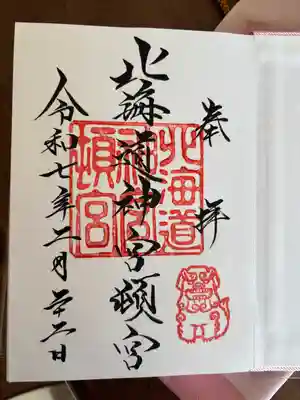 奉拝
北海道神宮頓宮
令和七年二月廿二日
北海道
神宮
頓宮